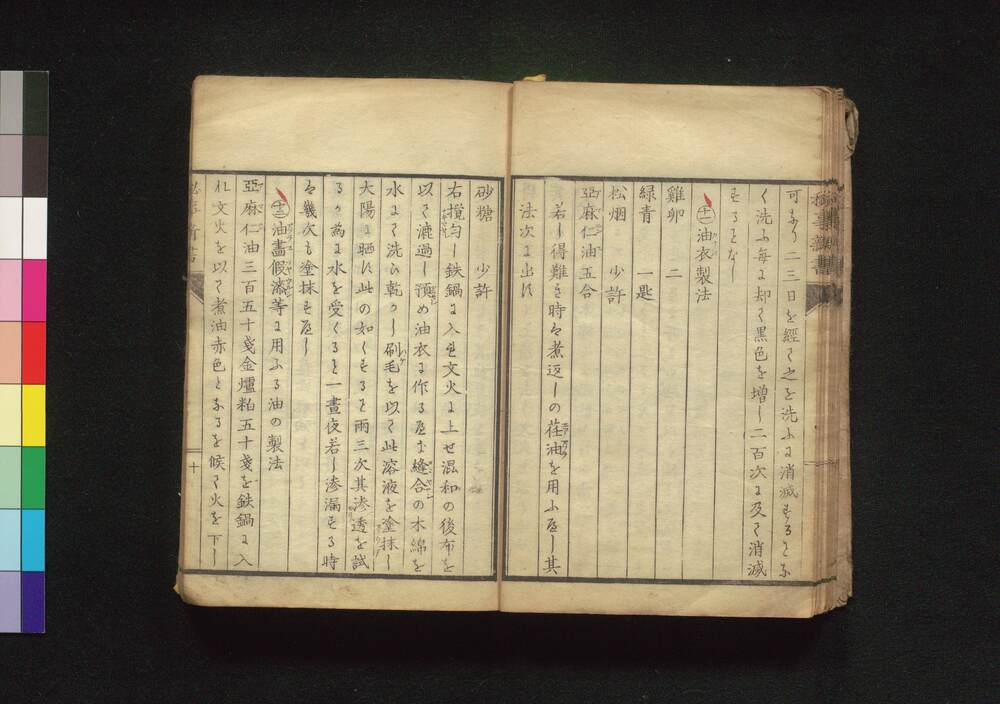 可なり二三日を經て之を洗ふに消滅することな
く洗ふ毎に却て黒色を増し二百次に及て消滅
することなし
十一 油衣製法
雞卵 二
緑青 一匙
松烟 少許
亞麻仁油五合
若し得難き時は煮返しの荏油を用ふべし其
法次に出す
砂糖 少許
右攪匀し鉄鍋に入れ文火に上せ混和の後布を
以て漉過し預め油衣に作るべき縫合の木綿を
水にて洗ひ乾かし刷毛を以て此溶液を塗抹し
大陽に晒す此の如くすること兩三次其滲透を試
るか為に水を受くること一晝夜若し滲漏する時
は幾次も塗抹すべし
十二 油畵假漆等に用ふる油の製法
亞麻仁油三百五十戔金爐粕五十戔を鉄鍋に入
れ文火を以て煮油赤色となるを候て火を下し
十